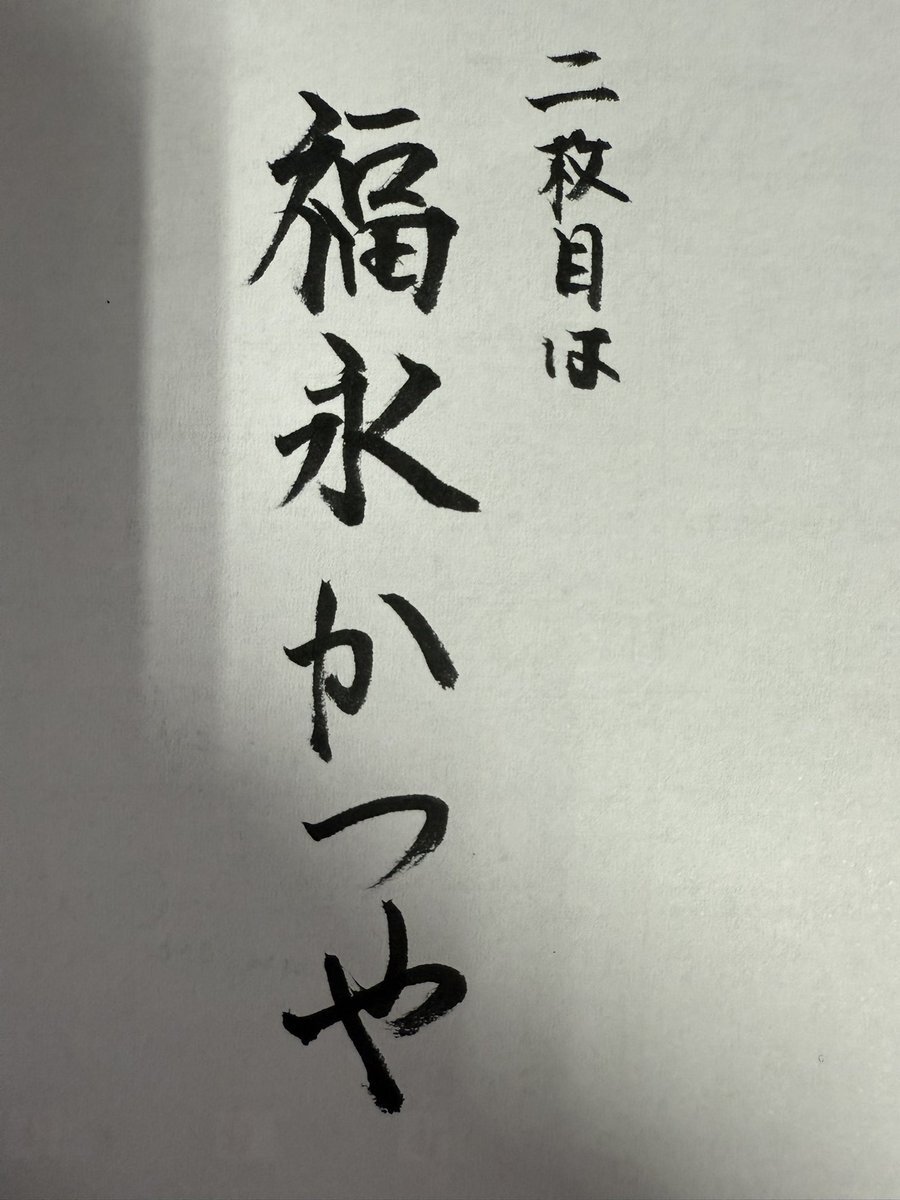 二枚目は
福永かつや